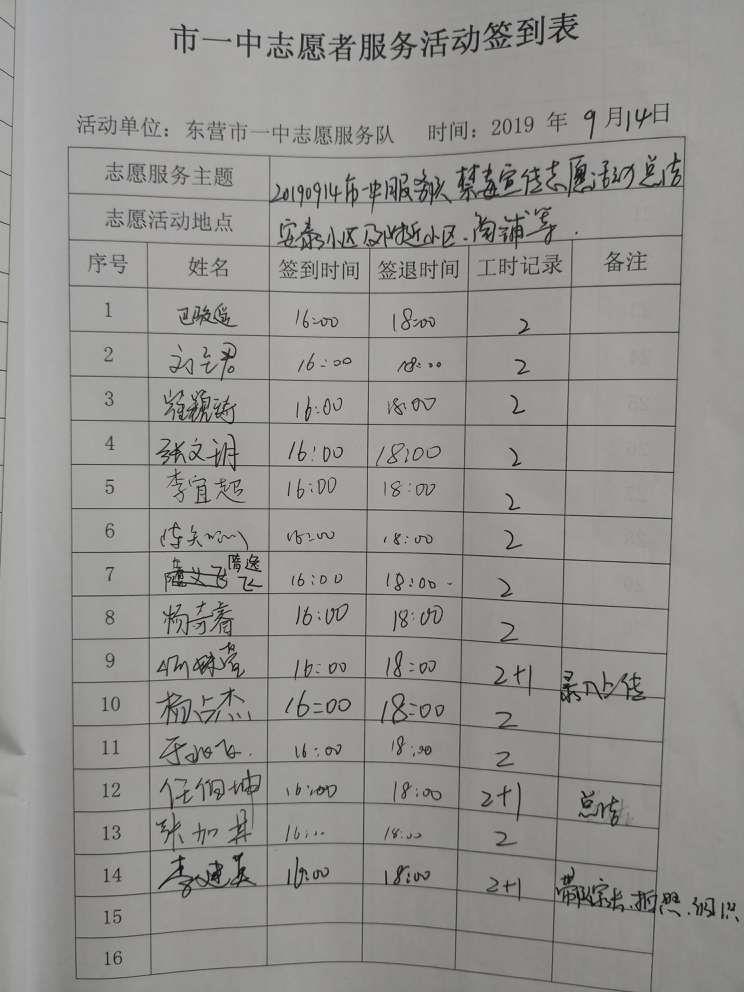 市一中志愿者服务活动签到表
活动单位：东营市一中志愿服务队 时间：2019 年 9 月 14 日
志愿服务主题 20190914市一中服务队禁毒宣传志愿活动总结
志愿活动地点 安泰小区及附近小区、商铺等.
序号 姓名 签到时间 签退时间 工时记录 备注
1 16:00 18:00 2
2 16:00 18:00 2
3 16:00 18:00 2
4 张文玥 16:00 18:00 2
5 李宜超 16:00 18:00 2
6 16:00 18:00 2
7 隋逸飞 16:00 18:00 2
8 杨奇睿 16:00 18:00 2
9 16:00 18:00 2+1 录入上传
10 杨占杰 16:00 18:00 2
11 16:00 18:00 2
12 任伯坤 16:00 18:00 2+1 总结
13 张加其 16:00 18:00 2
14 李建英 16:00 18:00 2+1 拍照、组织
15
16